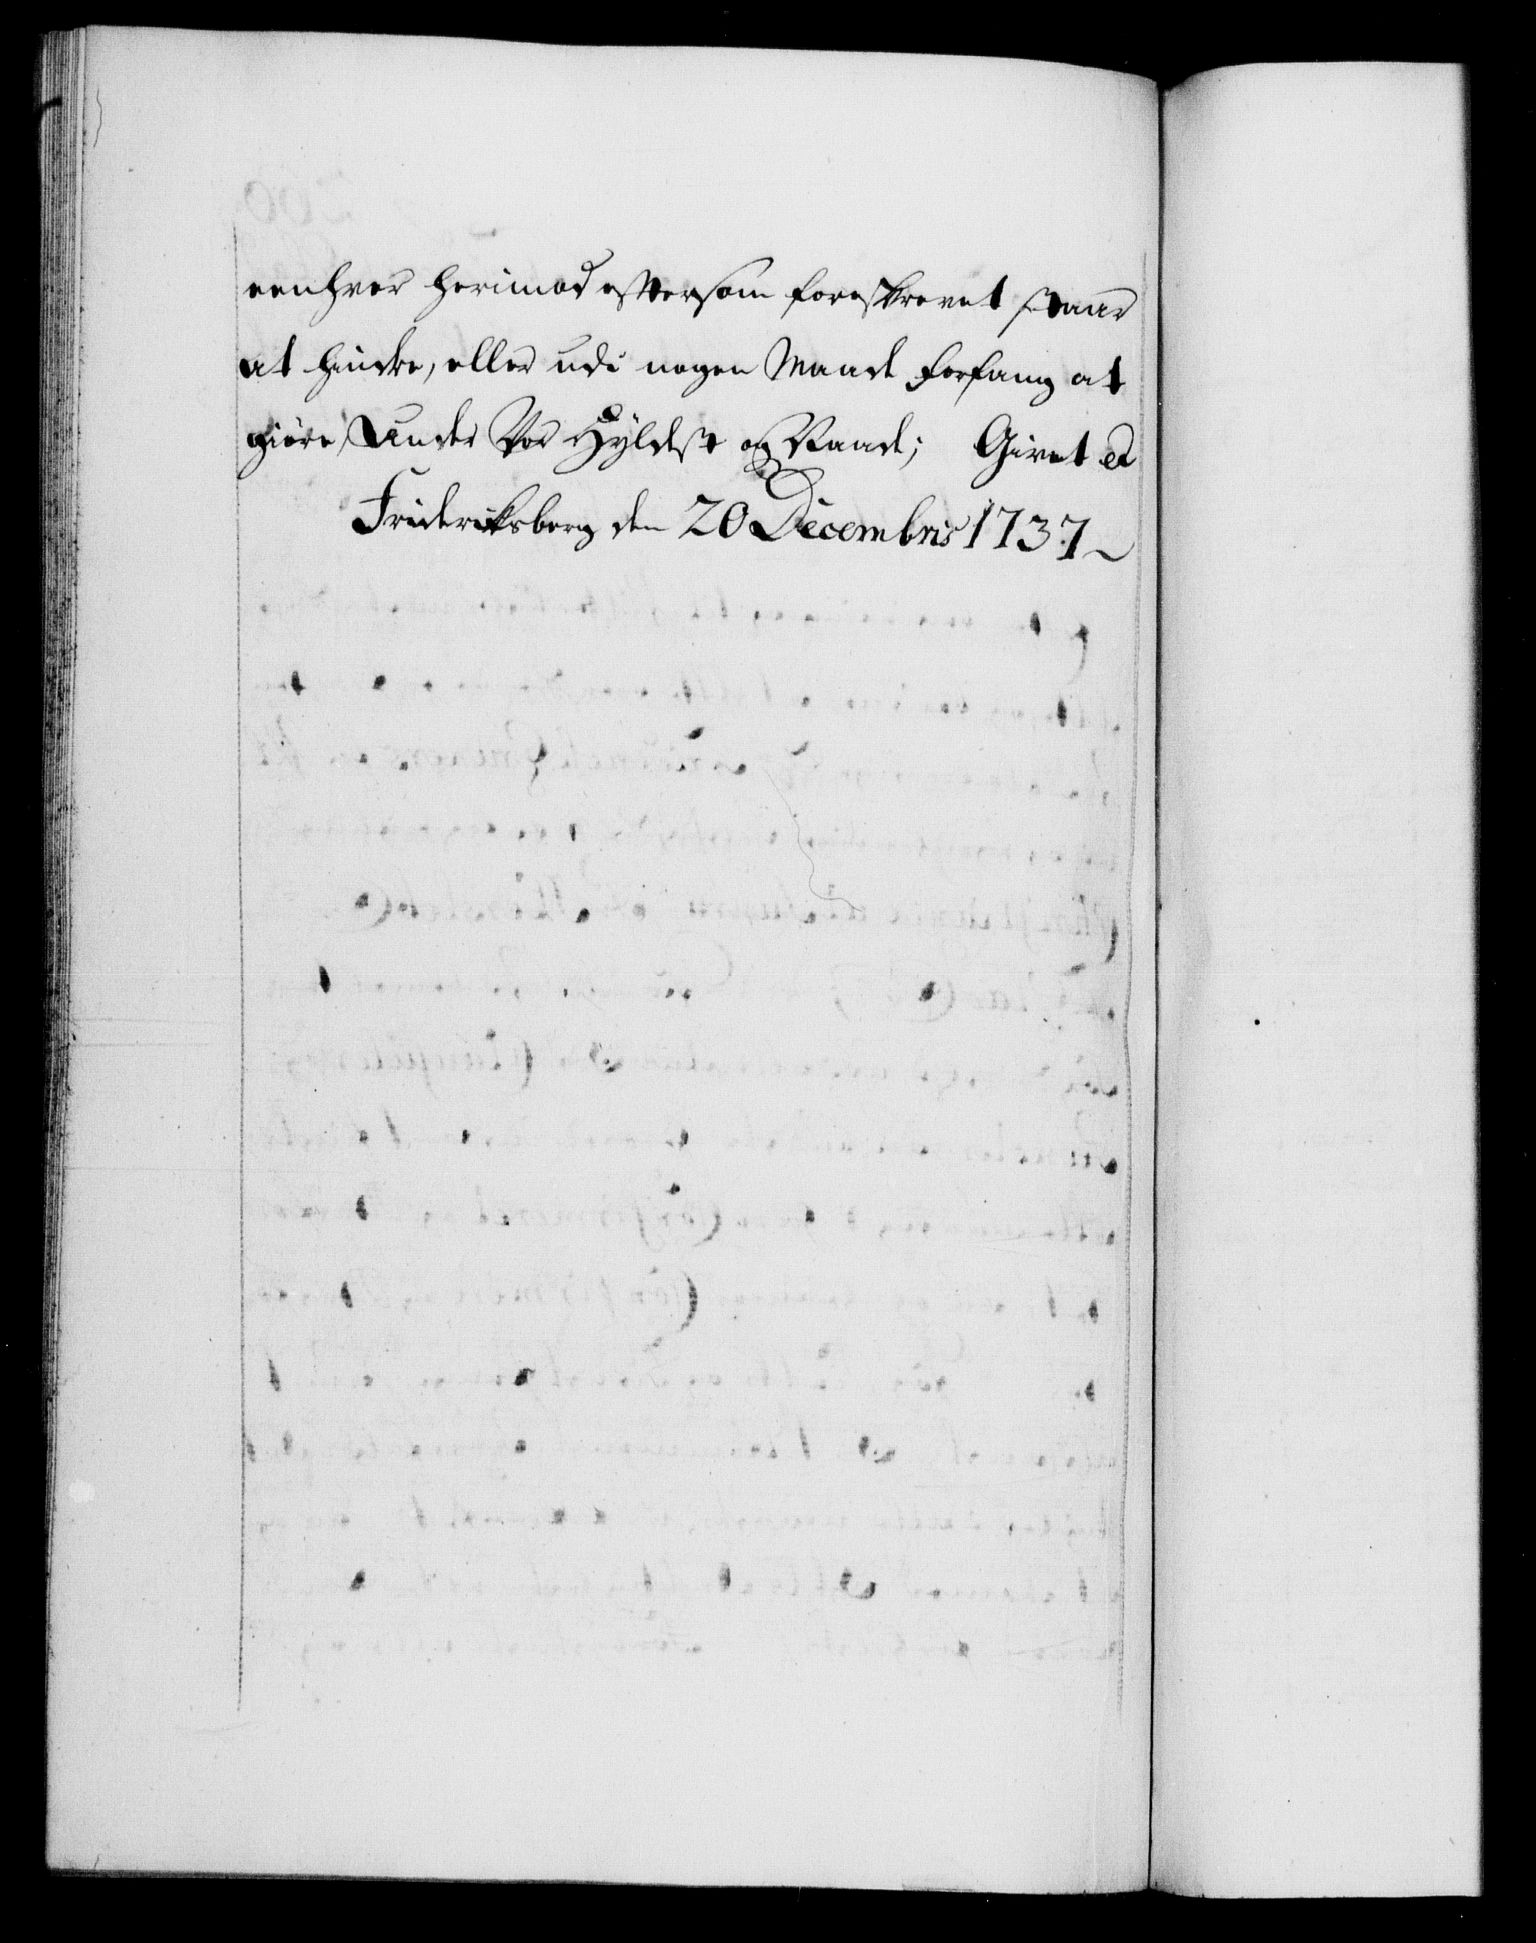 eenhver herimod eftersom foreskrevet staar
at hindre, eller udi nogen Maade forfang at
giøre, Under Vor Hyldest og Naade; Givet
Friderichsberg den 20 Decembris 1737